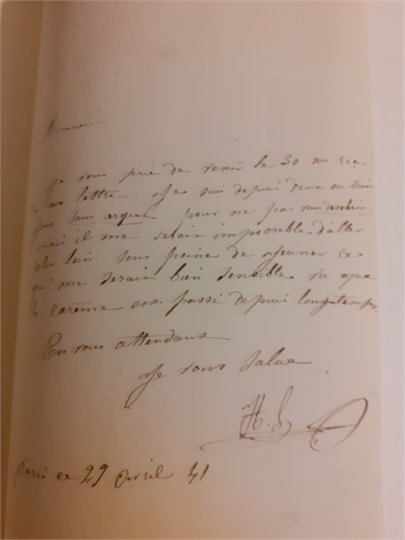 Monsieur
Je vous prie de venir le 30 au reçu
ma lettre. Je suis depuis deux ou trois
jours sans argent pour ne pas
mais il me serait impossible d'aller
plus loin sous peine de jeuner ce
qui me serait bien sensible vu que
le carême est passé depuis longtemps.
En vous attendant
Je vous salue
H. L
Paris ce 29 avril 41